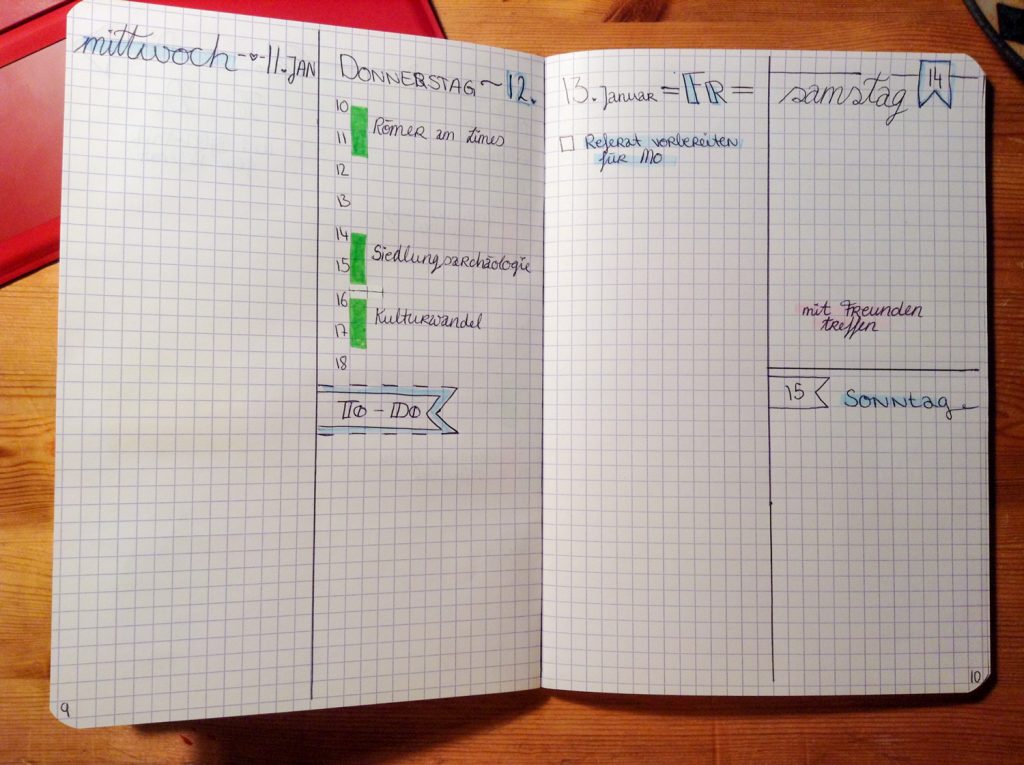 mittwoch-♥-11.JAN
DONNERSTAG ~ 12.
10
11
Römer am Limes
12
13
14
15
Siedlungsarchäologie
16
17
Kulturwandel
18
TO - DO
9
13. Januar = FR =
Referat vorbereiten
für MO
samstag 14
mit Freunden
treffen
15 Sonntag
10